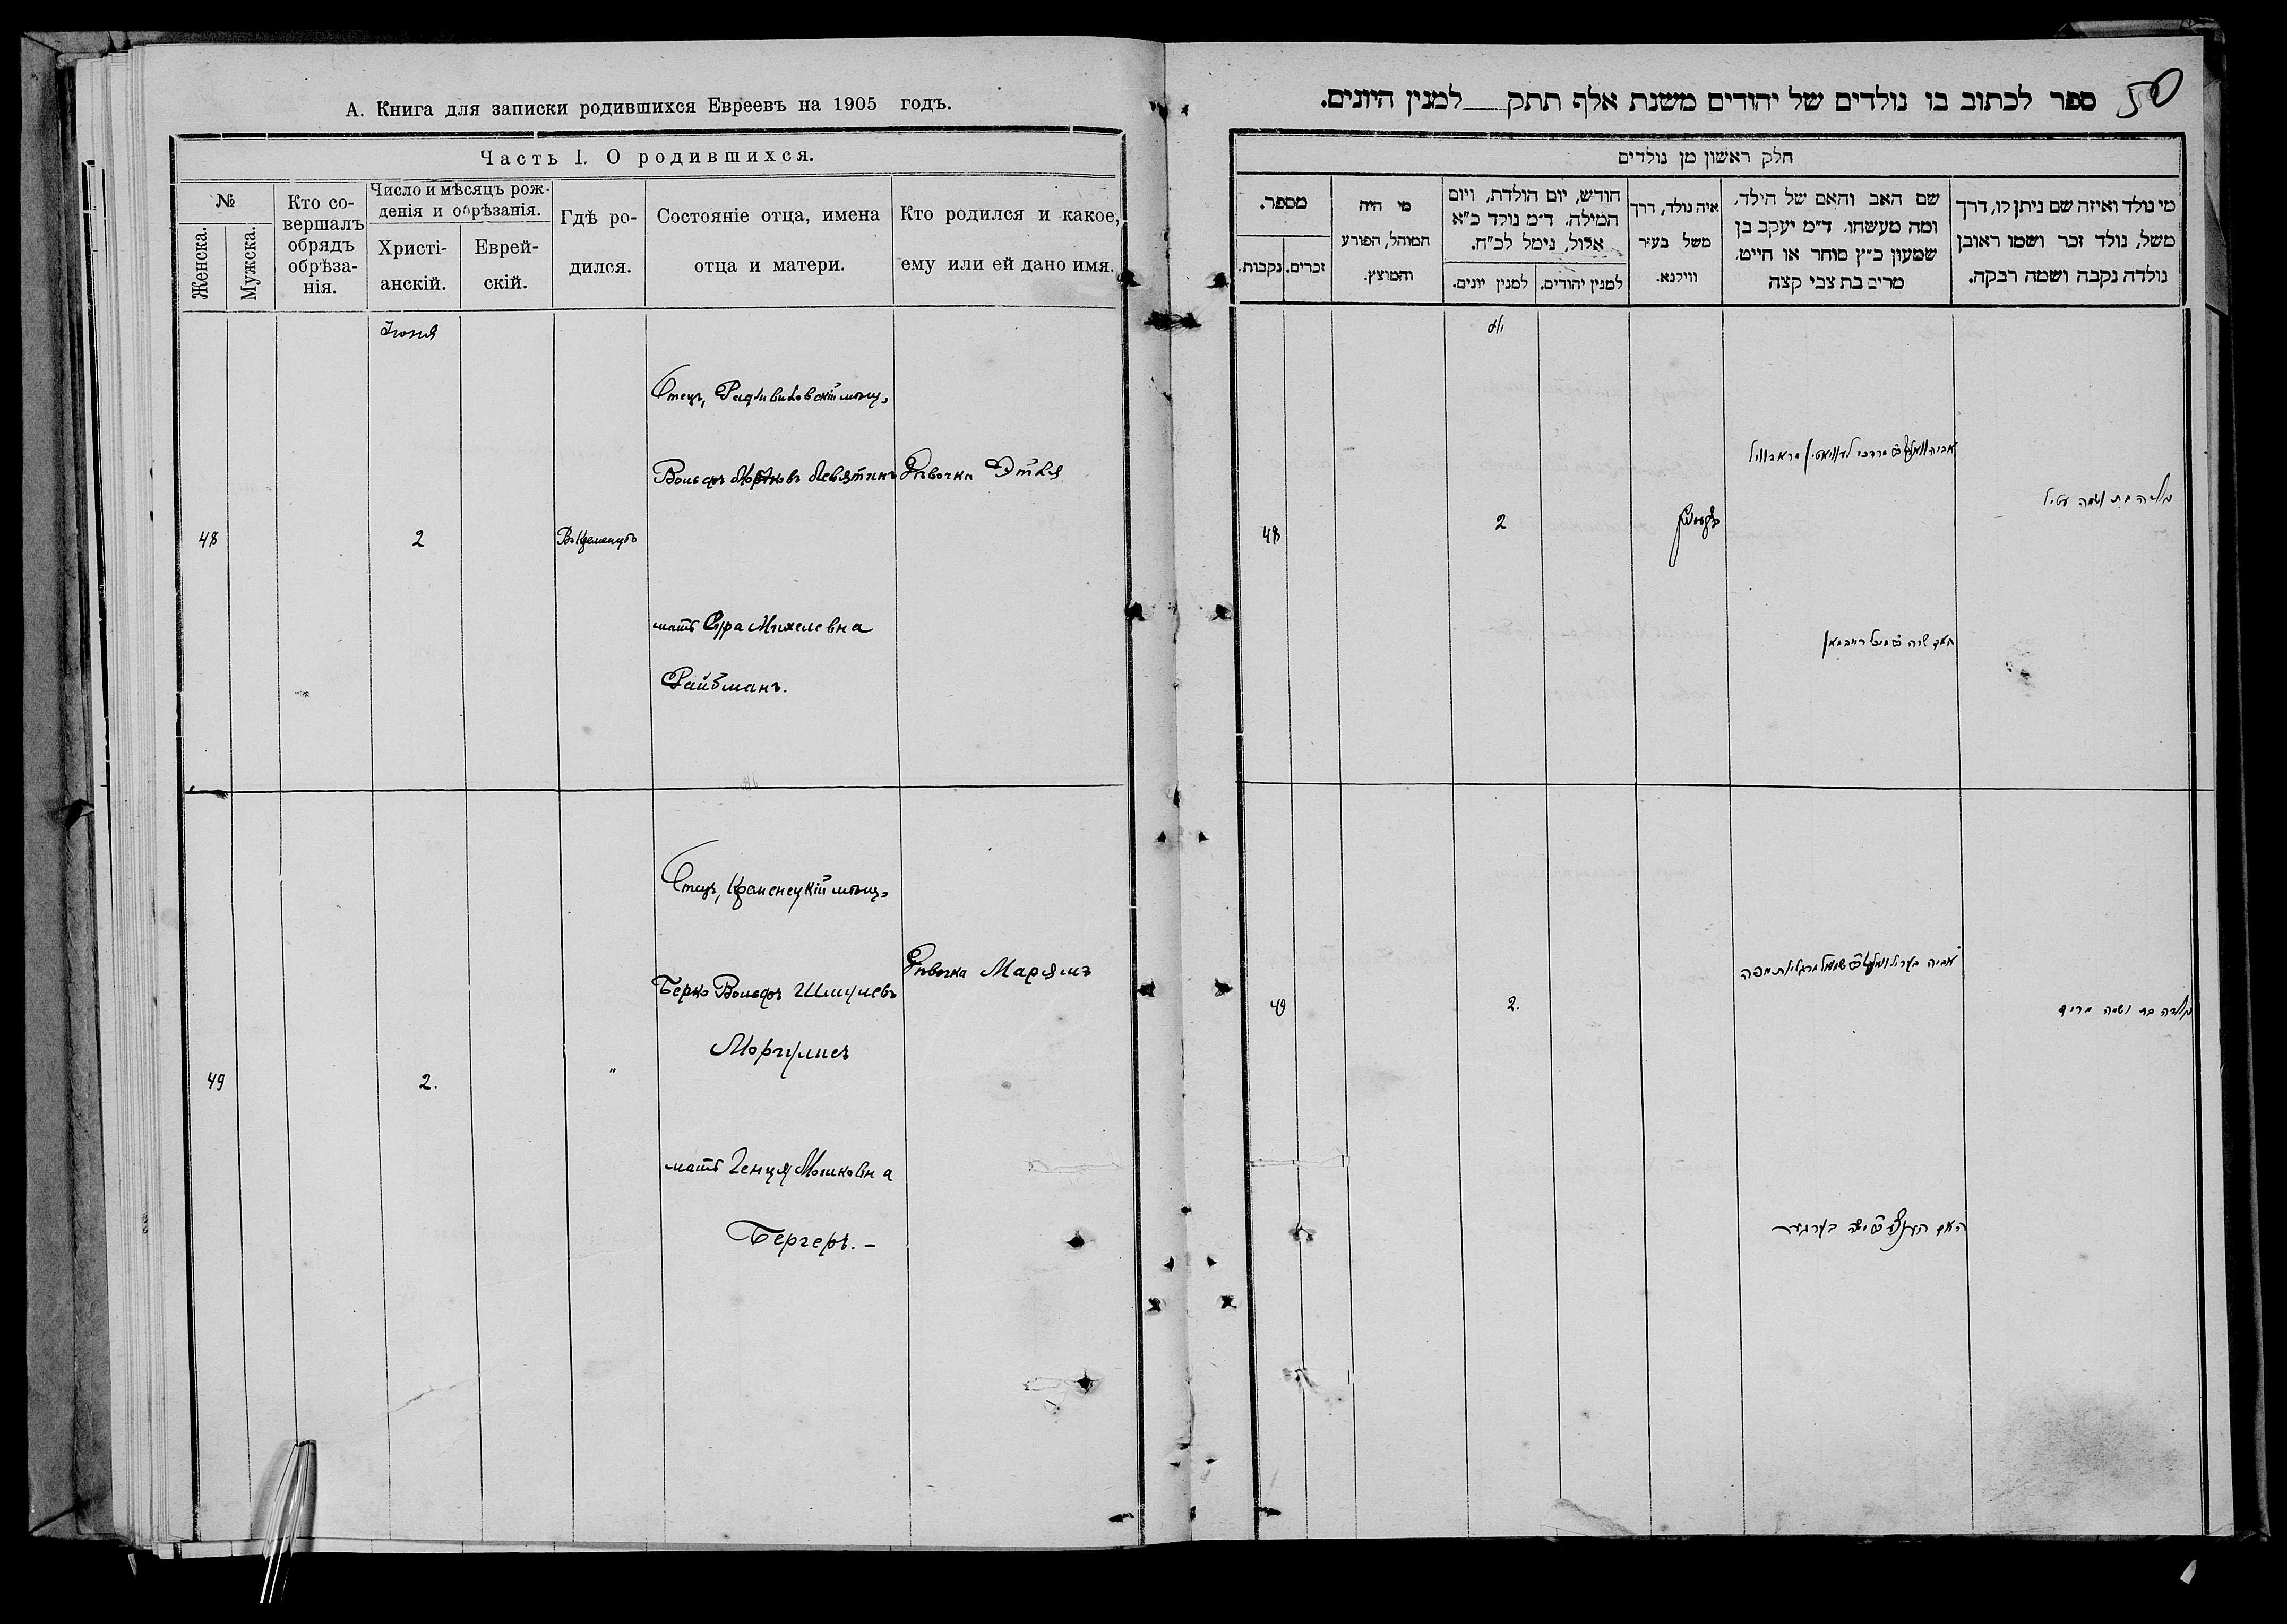 А. Книга для записки родившихся Евреевъ на 1905 годъ.
Часть I. О родившихся.
№
Женска.
Мужска.
Кто со-
вершалъ
обрядъ
обрѣза-
нія.
Число и мѣсяцъ рож-
денія и обрѣзанія.
Христі-
анскій.
Еврей-
скій.
Гдѣ ро-
дился.
Состояніе отца, имена
отца и матери.
Кто родился и какое,
ему или ей дано имя.
48
2
Отецъ, Радзивиловскій мѣщ.
Вольфъ Мортковъ Левятинъ
мать Сура Михелевна
Райбманъ.
Дѣвочка Этля
49
2.
"
Отецъ, Кременецкій мѣщ.
Берко Вольфъ Шмулевъ
Моргулисъ
мать Генця Мошковна
Бергеръ. –
Дѣвочка Марямъ
50
ספר לכתוב בו נולדים של יהודים משנת אלף תתק למנין היונים.
חלק ראשון מן נולדים
מספר.
זכרים.
נקבות.
מי היה
המוהל, הפורע
והמוצץ.
חודש, יום הולדת, ויום
המילה. ד״מ נולד כ״א
אלול, נימל לכ״ח.
למנין יונים.
למנין יהודים.
איה נולד, דרך
משל בעיר
ווילנא.
שם האב והאם של הילד,
ומה מעשהו. ד״מ יעקב בן
שמעון כ״ץ סוחר או חייט,
מרים בת צבי קצה
מי נולד ואיזה שם ניתן לו, דרך
משל, נולד זכר ושמו ראובן
נולדה נקבה ושמה רבקה.
48
2
נולדה בת ושמה עטיל
49
2.
נולדה בת ושמה מרים